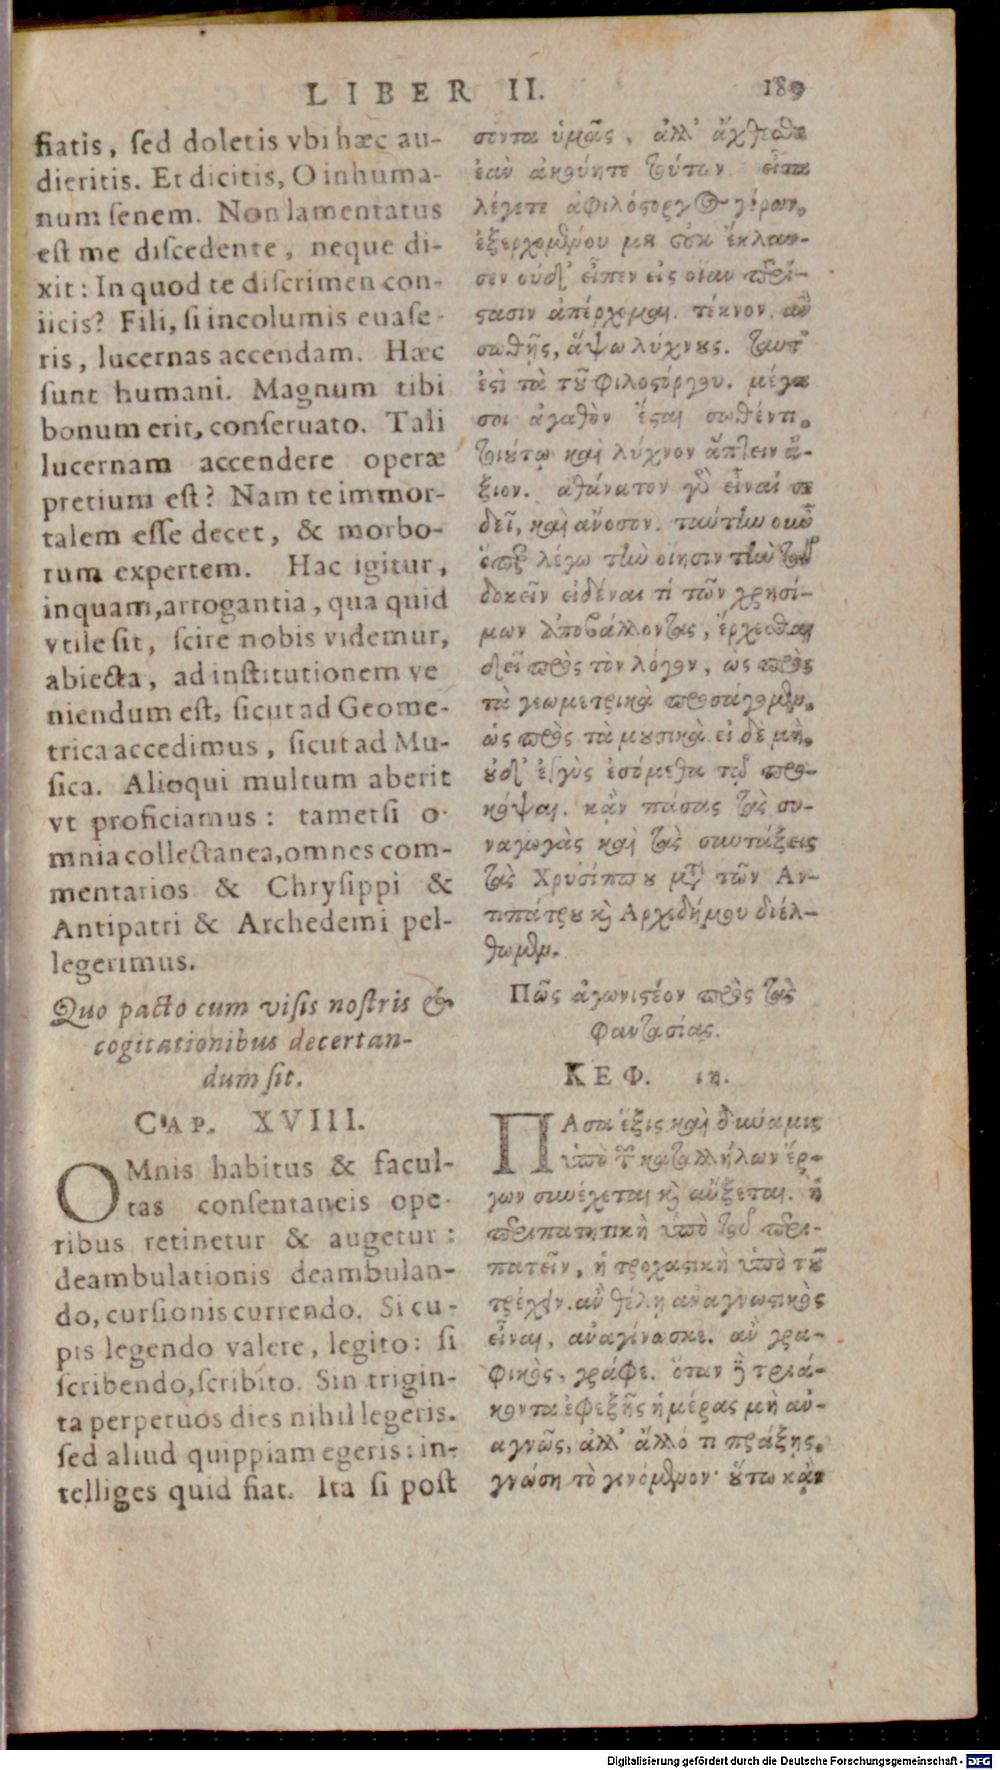 LIBER II. 189
fiatis, sed doletis vbi hæc au-
dieritis. Et dicitis, O inhuma-
num senem. Non lamentatus
est me discedente, neque di-
xit: In quod te discrimen con-
iicis? Fili, si incolumis euase-
ris, lucernas accendam. Hæc
sunt humani. Magnum tibi
bonum erit, conseruato. Tali
lucernam accendere operæ
pretium est? Nam te immor-
talem esse decet, & morbo-
rum expertem. Hac igitur,
inquam, arrogantia, qua quid
vtile sit, scire nobis videmur,
abiecta, ad institutionem ve
niendum est, sicut ad Geome-
trica accedimus, sicut ad Mu-
sica. Alioqui multum aberit
vt proficiamus: tametsi o-
mnia collectanea, omnes com-
mentarios & Chrysippi &
Antipatri & Archedemi pel-
legerimus.
Quo pacto cum visis nostris &
cogitationibus decertan-
dum sit.
CAP. XVIII.
OMnis habitus & facul-
tas consentaneis ope-
ribus retinetur & augetur:
deambulationis deambulan-
do, cursionis currendo. Si cu-
pis legendo valere, legito: si
scribendo, scribito. Sin trigin-
ta perpetuos dies nihil legeris.
sed aliud quippiam egeris: in-
telliges quid fiat. Ita si post
σεντα ὑμᾶς, ἀλλ' ἄχθεσθε
ἐὰν ἀκούητε τούτων. εἶτα
λέγετε ἀφιλόστοργος γέρων.
ἐξερχομένου μου οὐκ ἔκλαυ-
σεν οὐδ' εἶπεν εἰς οἵαν περί-
στασιν ἀπέρχομαι. τέκνον. ἂν
σωθῇς, ἅψω λύχνους. ταῦτ'
ἐστὶ τὰ τοῦ φιλοστόργου. μέγα
σοι ἀγαθὸν ἔσται σωθέντι.
τοιούτῳ καὶ λύχνον ἅπτειν ἄ-
ξιον. ἀθάνατον γὰρ εἶναί σε
δεῖ, καὶ ἄνοσον. ταύτην οὖν
ὅπερ λέγω τὴν οἴησιν τὴν τοῦ
δοκεῖν εἰδέναι τί τῶν χρησί-
μων ἀποβάλλοντας, ἔρχεσθαι
δεῖ πρὸς τὸν λόγον, ὡς πρὸς
τὰ γεωμετρικὰ προσάγομεν.
ὡς πρὸς τὰ μουσικὰ. εἰ δὲ μὴ.
οὐδ' ἐγγὺς ἐσόμεθα τῷ προ-
κόψαι. κἂν πάσας τὰς συ-
ναγωγὰς καὶ τὰς συντάξεις
τὰς Χρυσίππου μετὰ τῶν Αν-
τιπάτρου καὶ Αρχεδήμου διέλ-
θωμεν.
Πῶς ἀγωνιστέον πρὸς τὰς
φαντασίας.
ΚΕΦ. ιη.
ΠΑσα ἕξις καὶ δύναμις
ὑπὸ τῶν καταλλήλων ἔρ-
γων συνέχεται καὶ αὔξεται. ἡ
περιπατητικὴ ὑπὸ τοῦ περι-
πατεῖν, ἡ τροχαστικὴ ὑπὸ τοῦ
τρέχειν. ἂν θέλῃ ἀναγνωστικὸς
εἶναι, ἀναγίνωσκε. ἂν γρα-
φικὸς, γράφε. ὅταν δὲ τριά-
κοντα ἐφεξῆς ἡμέρας μὴ ἀν-
αγνῶς, ἀλλ' ἄλλό τι πράξῃς.
γνώσῃ τὸ γινόμενον· οὕτω κἂν
Digitalisierung gefördert durch die Deutsche Forschungsgemeinschaft - DFG